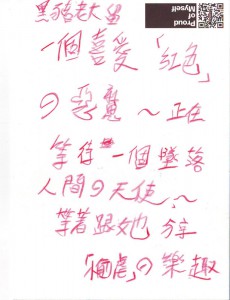 黑豬老大蛋
一個喜愛「紅色」
の惡魔～正在
等待一個墜落
人間の天使~~
等著跟她分享
「凌虐」の樂趣
Proud
of
Myself